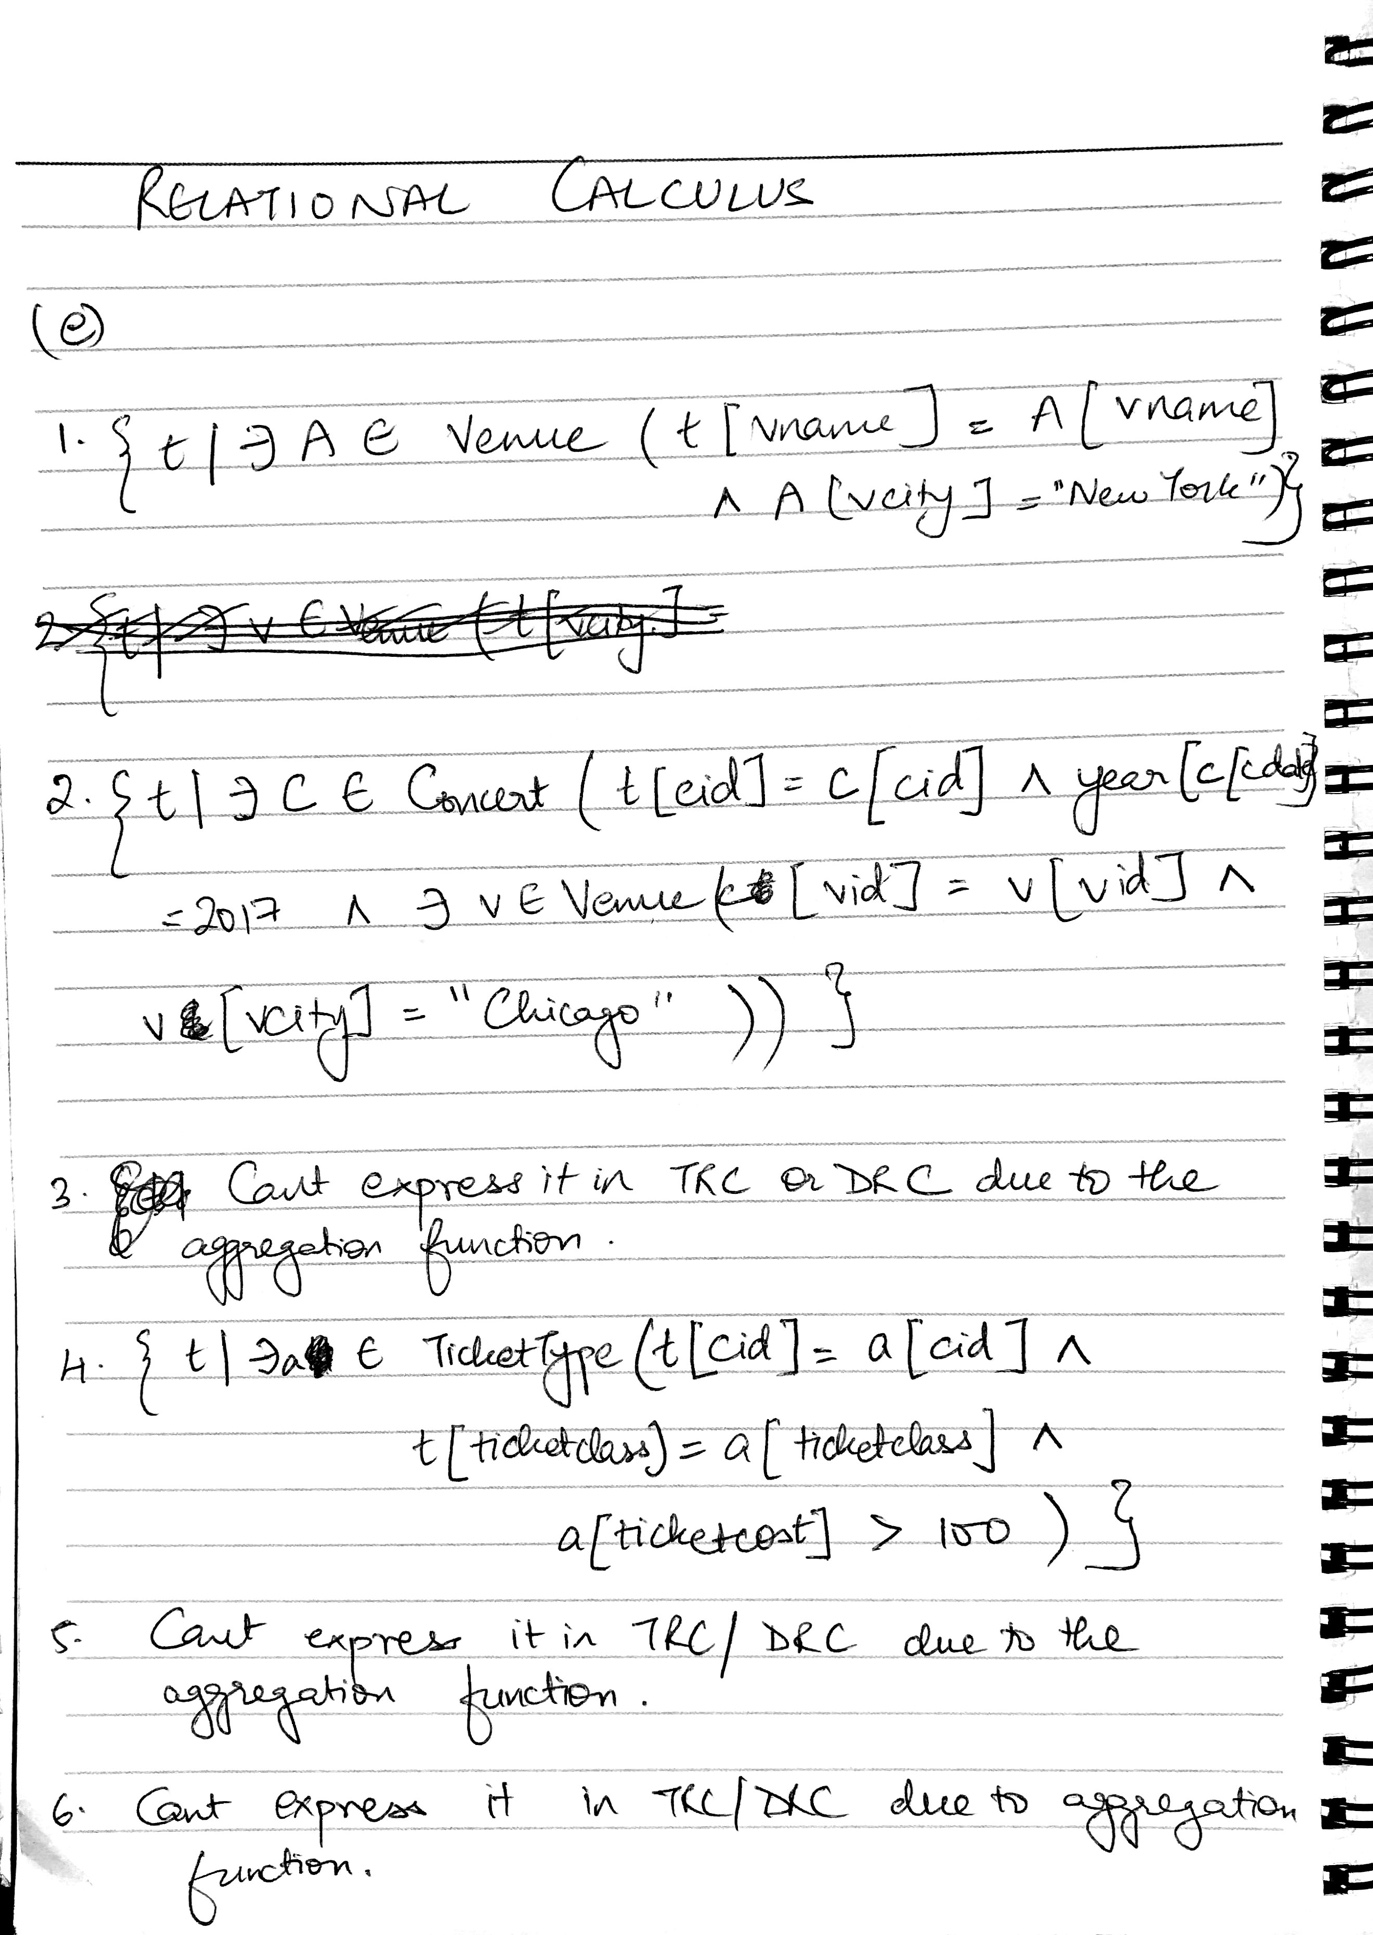 RELATIONAL CALCULUS
(e)
1. { t | ∃ A ∈ Venue ( t [ vname ] = A [ vname ]
∧ A [ vcity ] = "New York" ) }
2. { t | ∃ v ∈ Venue ( t [ vcity ] =
2. { t | ∃ C ∈ Concert ( t [cid] = c [cid] ∧ year [ c [cdate]]
= 2017 ∧ ∃ v ∈ Venue ( c [ vid ] = v [ vid ] ∧
v [ vcity ] = "Chicago" ) ) }
3. Cant express it in TRC or DRC due to the
aggregation function.
4. { t | ∃ a ∈ TicketType ( t [ cid ] = a [ cid ] ∧
t [ ticketclass ) = a [ ticketclass ] ∧
a [ ticketcost ] > 100 ) }
5. Cant express it in TRC / DRC due to the
aggregation function.
6. Cant express it in TRC / DRC due to aggregation
function.